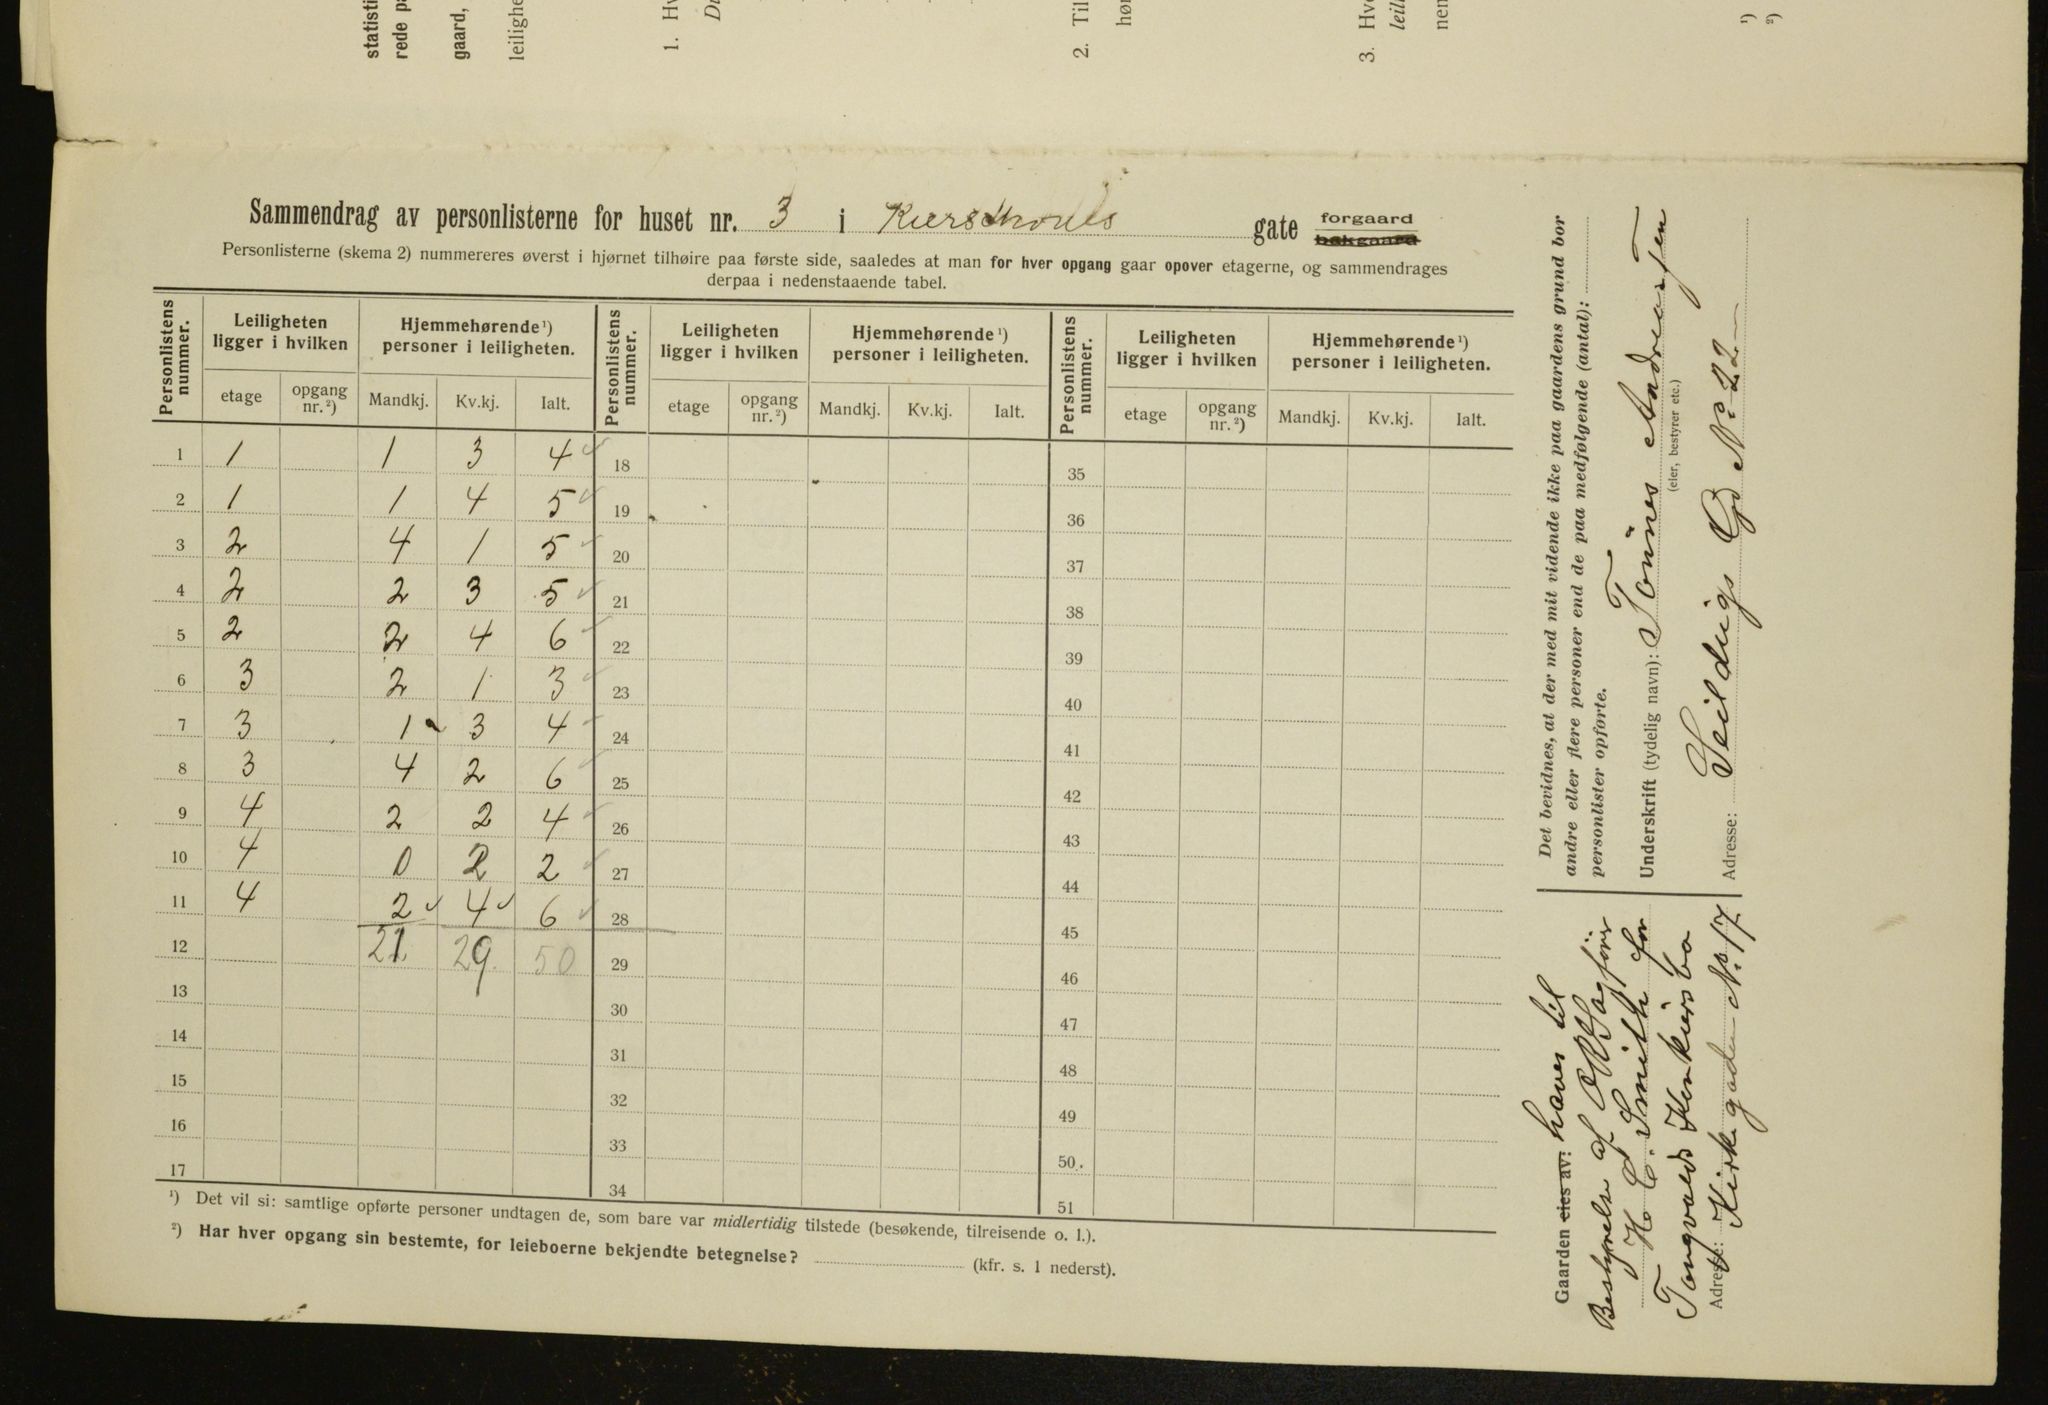 statisti
rede pa
gaard,
leilighe
1. Hv
D
2. Til
hør
3. Hvo
leil
nem
¹)
²)
Sammendrag av personlisterne for huset nr. 3 i Kierschouws gate forgaard
bakgaard
Personlisterne (skema 2) nummereres øverst i hjørnet tilhøire paa første side, saaledes at man for hver opgang gaar opover etagerne, og sammendrages
derpaa i nedenstaaende tabel.
Personlistens nummer. Leiligheten ligger i hvilken Hjemmehørende¹) personer i leiligheten. Personlistens nummer. Leiligheten ligger i hvilken Hjemmehørende¹) personer i leiligheten. Personlistens nummer. Leiligheten ligger i hvilken Hjemmehørende¹) personer i leiligheten.
etage opgang nr.²) Mandkj. Kv.kj. Ialt. etage opgang nr.²) Mandkj. Kv.kj. Ialt. etage opgang nr.²) Mandkj. Kv.kj. Ialt.
1 1 1 3 4 18 35
2 1 1 4 5 19 36
3 2 4 1 5 20 37
4 2 2 3 5 21 38
5 2 2 4 6 22 39
6 3 2 1 3 23 40
7 3 1 3 4 24 41
8 3 4 2 6 25 42
9 4 2 2 4 26 43
10 4 0 2 2 27 44
11 4 2 4 6 28 45
12 21 29 50 29 46
13 30 47
14 31 48
15 32 49
16 33 50
17 34 51
¹) Det vil si: samtlige opførte personer undtagen de, som bare var midlertidig tilstede (besøkende, tilreisende o. l.).
²) Har hver opgang sin bestemte, for leieboerne bekjendte betegnelse? (kfr. s. 1 nederst).
Det bevidnes, at der med mit vidende ikke paa gaardens grund bor
andre eller flere personer end de paa medfølgende (antal):
personlister opførte.
Underskrift (tydelig navn): Tønnes Andreassen
(eier, bestyrer etc.)
Adresse: Seildugs Gd No. 22
Gaarden eies av: hører til
Bestyrelse af
H. C. Smith for
Adresse: Kirkegaden No. 17